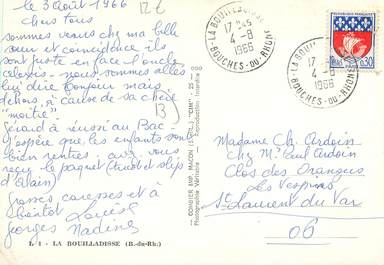 le 3 août 1966
Chers tous
sommes venus chez ma belle
sœur et coïncidence ils
sont juste en face l'oncle
nous sommes allés
lui dire bonjour mais
dehors, à cause de sa chère
"moitié"
Gérard a réussi au Bac -
J'espère que les enfants sont
bien rentrés, avez vous
reçu le paquet (tricot et slips
d'Alain)
Grosses caresses et à
bientôt Louise
Georges Nadine
L 8 - LA BOUILLADISSE (B.-du-Rh.)
COMBIER IMP. MACON (S.-&-L.) "CIM"
Photographie Véritable - Reproduction Interdite
LA BOUILLADISSE
17 H 45
4-8
1966
BOUCHES-DU-RHONE
LA BOUILLADISSE
17 H
4-8
1966
BOUCHES-DU-RHONE
REPUBLIQUE FRANÇAISE
PARIS
0,30
Madame Ch. Ardoin
chez Mr Paul Ardoin
Clos des Orangers
Les Vespins
St Laurent du Var
06